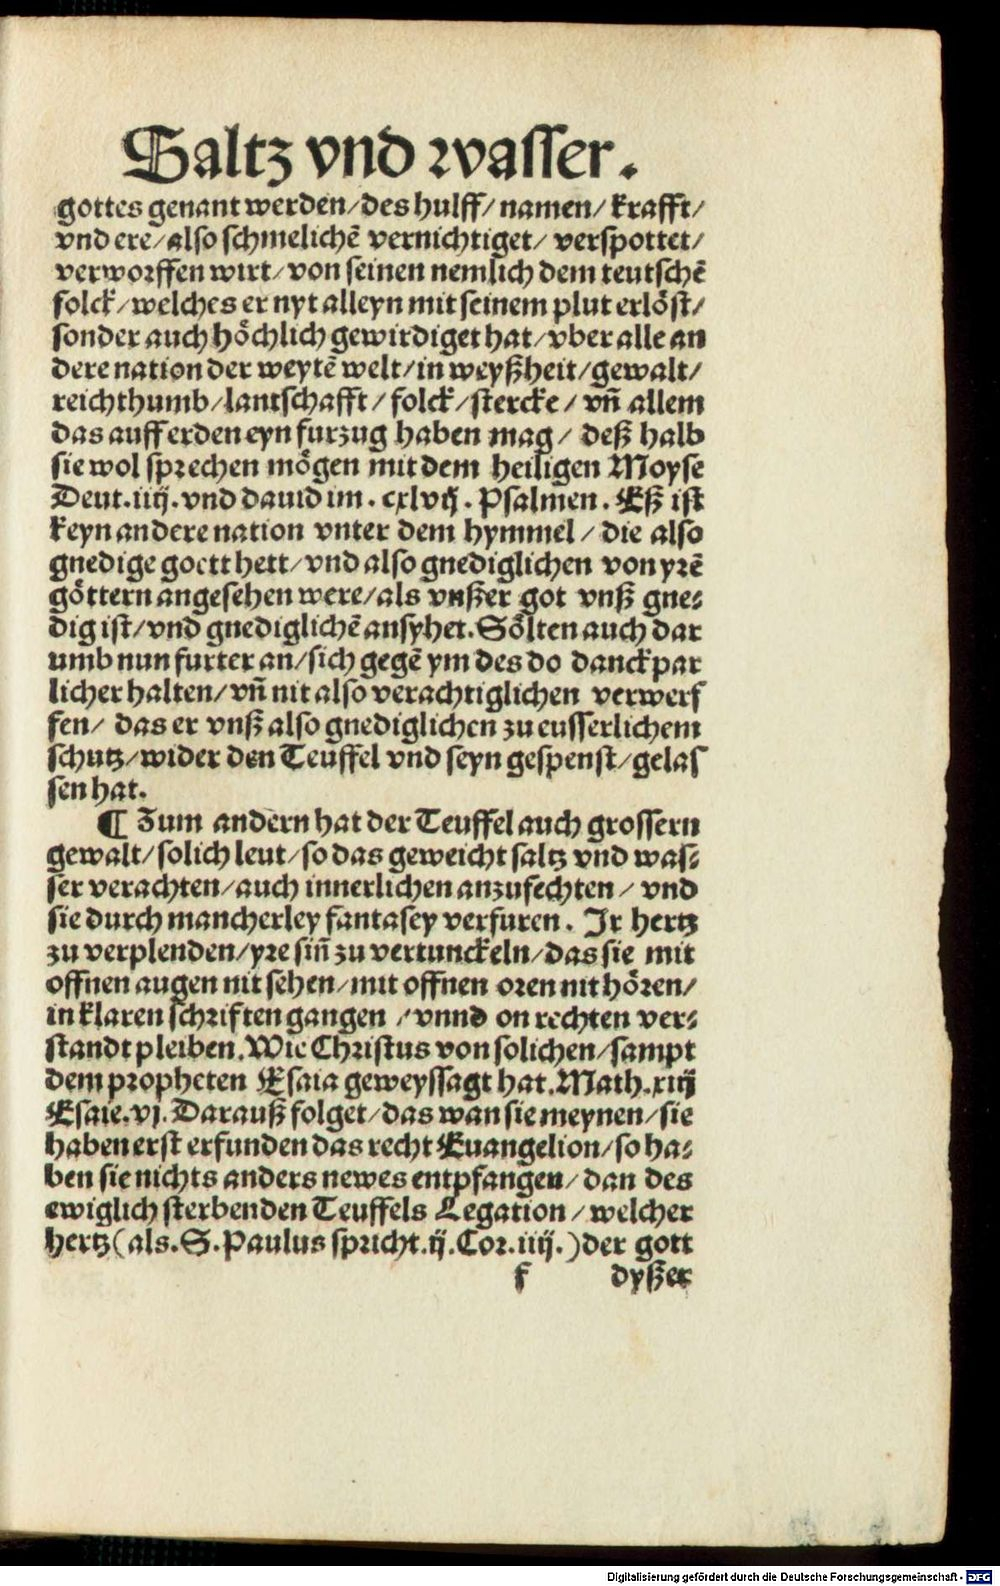 Saltz vnd wasser.
gottes genant werden/des hulff/ namen/ krafft/
vnd ere/also schmelichē vernichtiget/ verspottet/
verworffen wirt/von seinen nemlich dem teutschē
folck/welches er nyt alleyn mit seinem plut erlöst/
sonder auch höchlich gewirdiget hat/vber alle an
dere nation der weytē welt/in weyßheit/gewalt/
reichthumb/lantschafft/ folck/stercke/ vn̄ allem
das auff erden eyn furzug haben mag/ deß halb
sie wol sprechen mögen mit dem heiligen Moyse
Deut.iiij.vnd dauid im.cxlvij.Psalmen.Eß ist
keyn andere nation vnter dem hymmel/ die also
gnedige goctt hett/vnd also gnediglichen von yrē
göttern angesehen were/als vnßer got vnß gne⸗
dig ist/vnd gnediglichē ansyhet.Sölten auch dar
umb nun furter an/sich gegē ym des do danckpar
licher halten/vn̄ nit also verachtiglichen verwerf
fen/ das er vnß also gnediglichen zu eusserlichem
schutz/wider den Teuffel vnd seyn gespenst/gelas
sen hat.
¶ Zum andern hat der Teuffel auch grossern
gewalt/solich leut/so das geweicht saltz vnd was⸗
ser verachten/auch innerlichen anzufechten/ vnd
sie durch mancherley fantasey verfuren. Jr hertz
zu verplenden/yre sin̄ zu vertunckeln/das sie mit
offnen augen nit sehen/mit offnen oren nit hören/
in klaren schriften gangen /vnnd on rechten ver⸗
standt pleiben.Wie Christus von solichen/sampt
dem propheten Esaia geweyssagt hat.Math.xiij
Esaie.vj.Darauß folget/das wan sie meynen/sie
haben erst erfunden das recht Euangelion/so ha⸗
ben sie nichts anders newes entpfangen/ dan des
ewiglich sterbenden Teuffels Legation/welcher
hertz(als.S.Paulus spricht.ij.Cor.iiij.)der gott
f dyßer
Digitalisierung gefördert durch die Deutsche Forschungsgemeinschaft - DFG